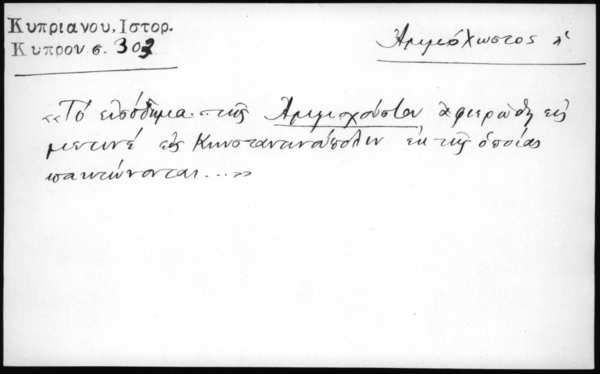 Κυπριανου, Ιστορ.
Κυπρου σ. 303
Ἀμμόχωστος
«Τὸ εἰσόδημα..τῆς Ἀμμοχούστου ἀφιερώθη εἰς
μετινέ εἰς Κωνσταντινούπολιν ἐκ τῆς ὁποίας
παιτώνονται...»